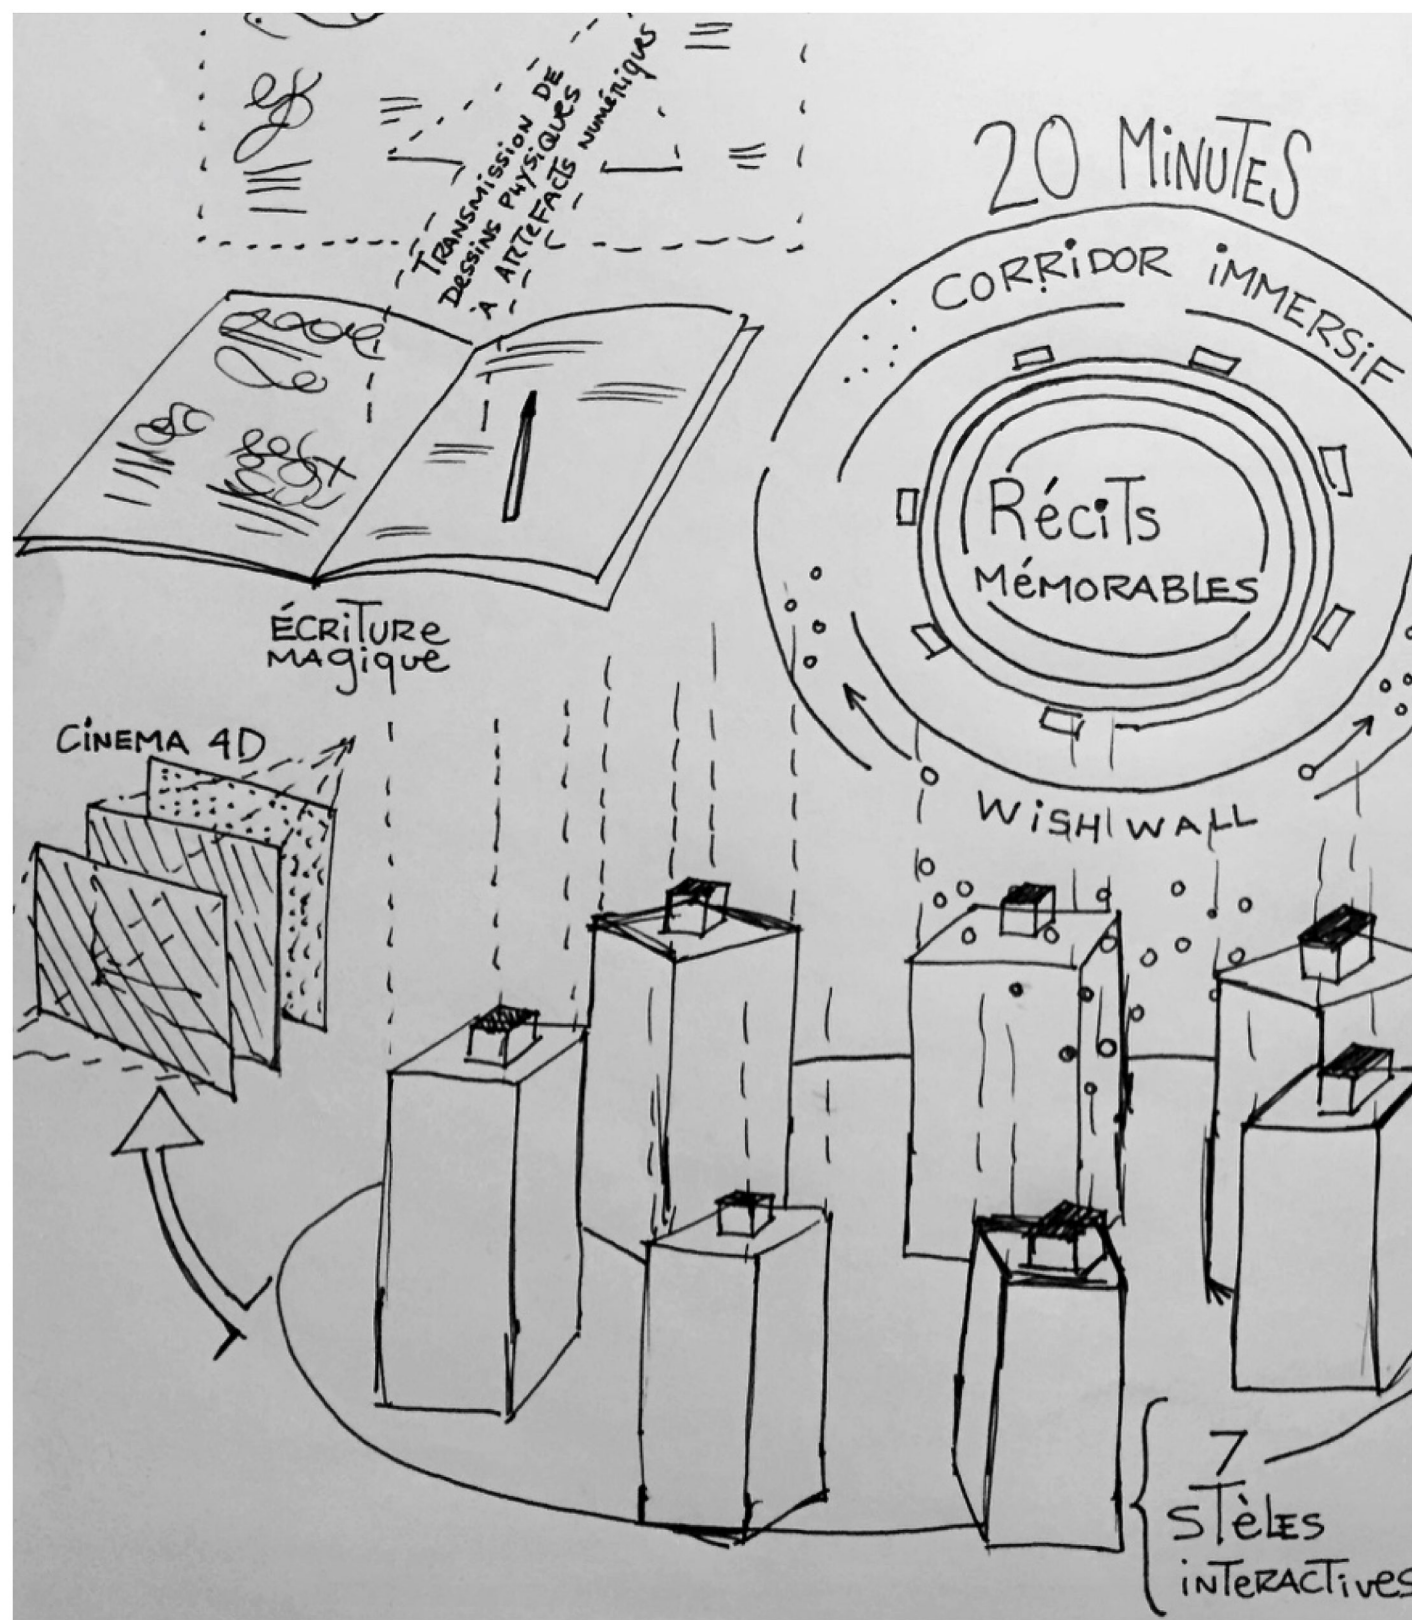 TRANSMISSION DE
DESSINS PHYSIQUES
À ARTEFACTS NUMÉRIQUES
20 MINUTES
CORRIDOR IMMERSIF
Récits
MÉMORABLES
ÉCRITURE
MAGIQUE
CINEMA 4D
WISH WALL
7
STÈLES
INTERACTIVES